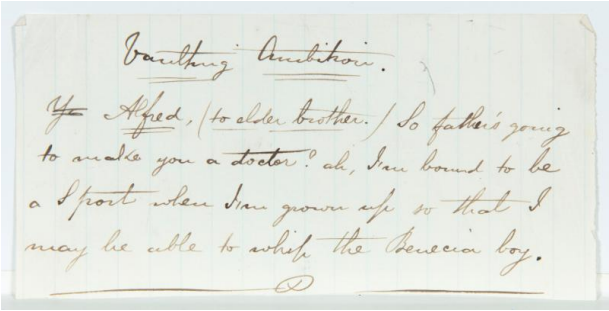 Vaulting Ambition.
Alfred, (to elder brother.) So father's going
to make you a doctor? ah, I'm bound to be
a Sport when I'm grown up so that I
may be able to whip the Benecia boy.